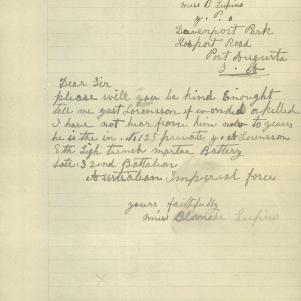 miss B Lupino
G. P. O
Davenport Park
Hosport Road
Port Augusta
S. A
Dear Sir
please will you be kind Enought
tell me gast Lorensson if wonded or pelled
I have not her from him now to years
he is the in. No 125 private G. A Lorensson
5 the Ligh trench mortar Battery
Late 32nd Battalion
Australian Imperial force
yours faithfully
miss Blanche Lupino